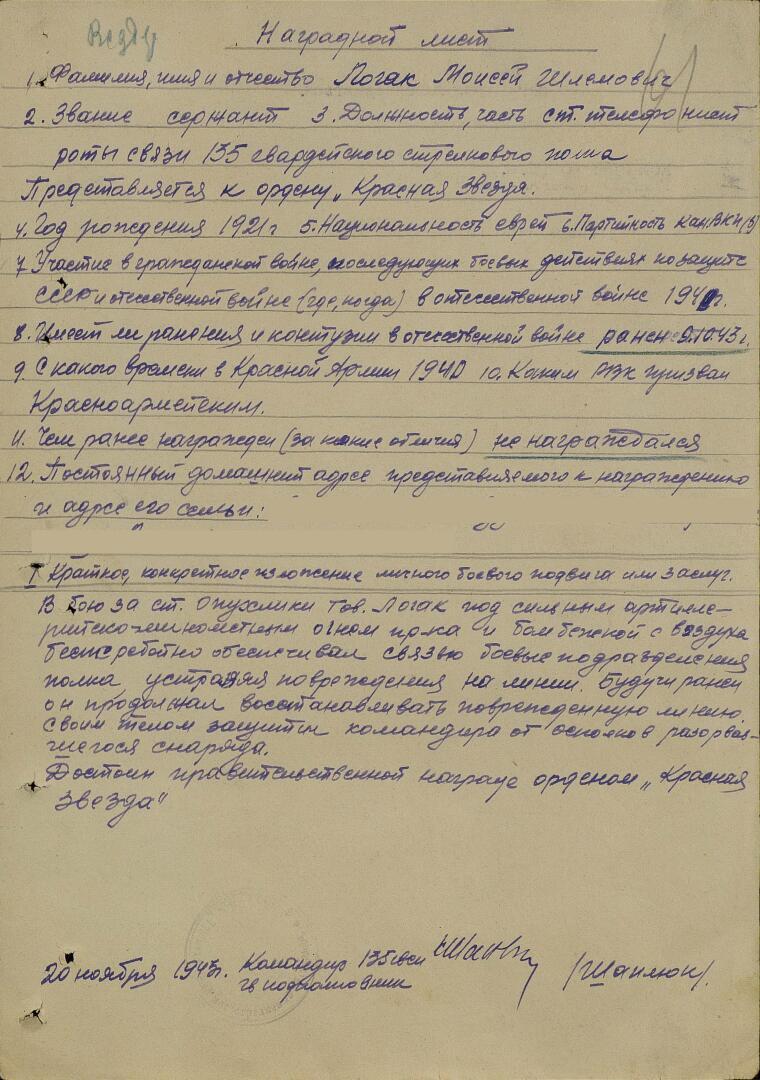 Наградной лист
1. Фамилия, имя и отчество Логак Моисей Шлемович
2. Звание сержант 3. Должность, часть ст. телефонист
роты связи 135 гвардейского стрелкового полка
Представляется к ордену „Красная Звезда.
4. Год рождения 1921 г 5. Национальность еврей 6. Партийность кан. ВКП(б)
7. Участие в гражданской войне, последующих боевых действиях по защите
СССР и отечественной войне (где, когда) в отечественной войне 1941 г.
8. Имеет ли ранения и контузии в отечественной войне ранен 9.10.43 г.
9. С какого времени в Красной Армии 1940 10. Каким РВК призван
Красноармейским.
11. Чем ранее награжден (за какие отличия) не награждался
12. Постоянный домашний адрес представляемого к награждению
и адрес его семьи:
I Краткое, конкретное изложение личного боевого подвига или заслуг.
В бою за ст. Опухлики тов. Логак под сильным артилле-
рийско-минометным огнем пр-ка и бомбежкой с воздуха
бесперебойно обеспечивал связью боевые подразделения
полка устраняя повреждения на линии. Будучи ранен
он продолжал восстанавливать поврежденную линию,
своим телом защитил командира от осколков разорвав-
шегося снаряда.
Достоин правительственной награде орденом „Красная
Звезда"
20 ноября 1943 г. Командир 135 гвсп
гв подполковник /Шанлюк/.